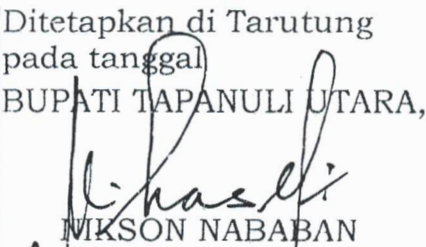 Ditetapkan di Tarutung
pada tanggal
BUPATI TAPANULI UTARA,
NIKSON NABABAN